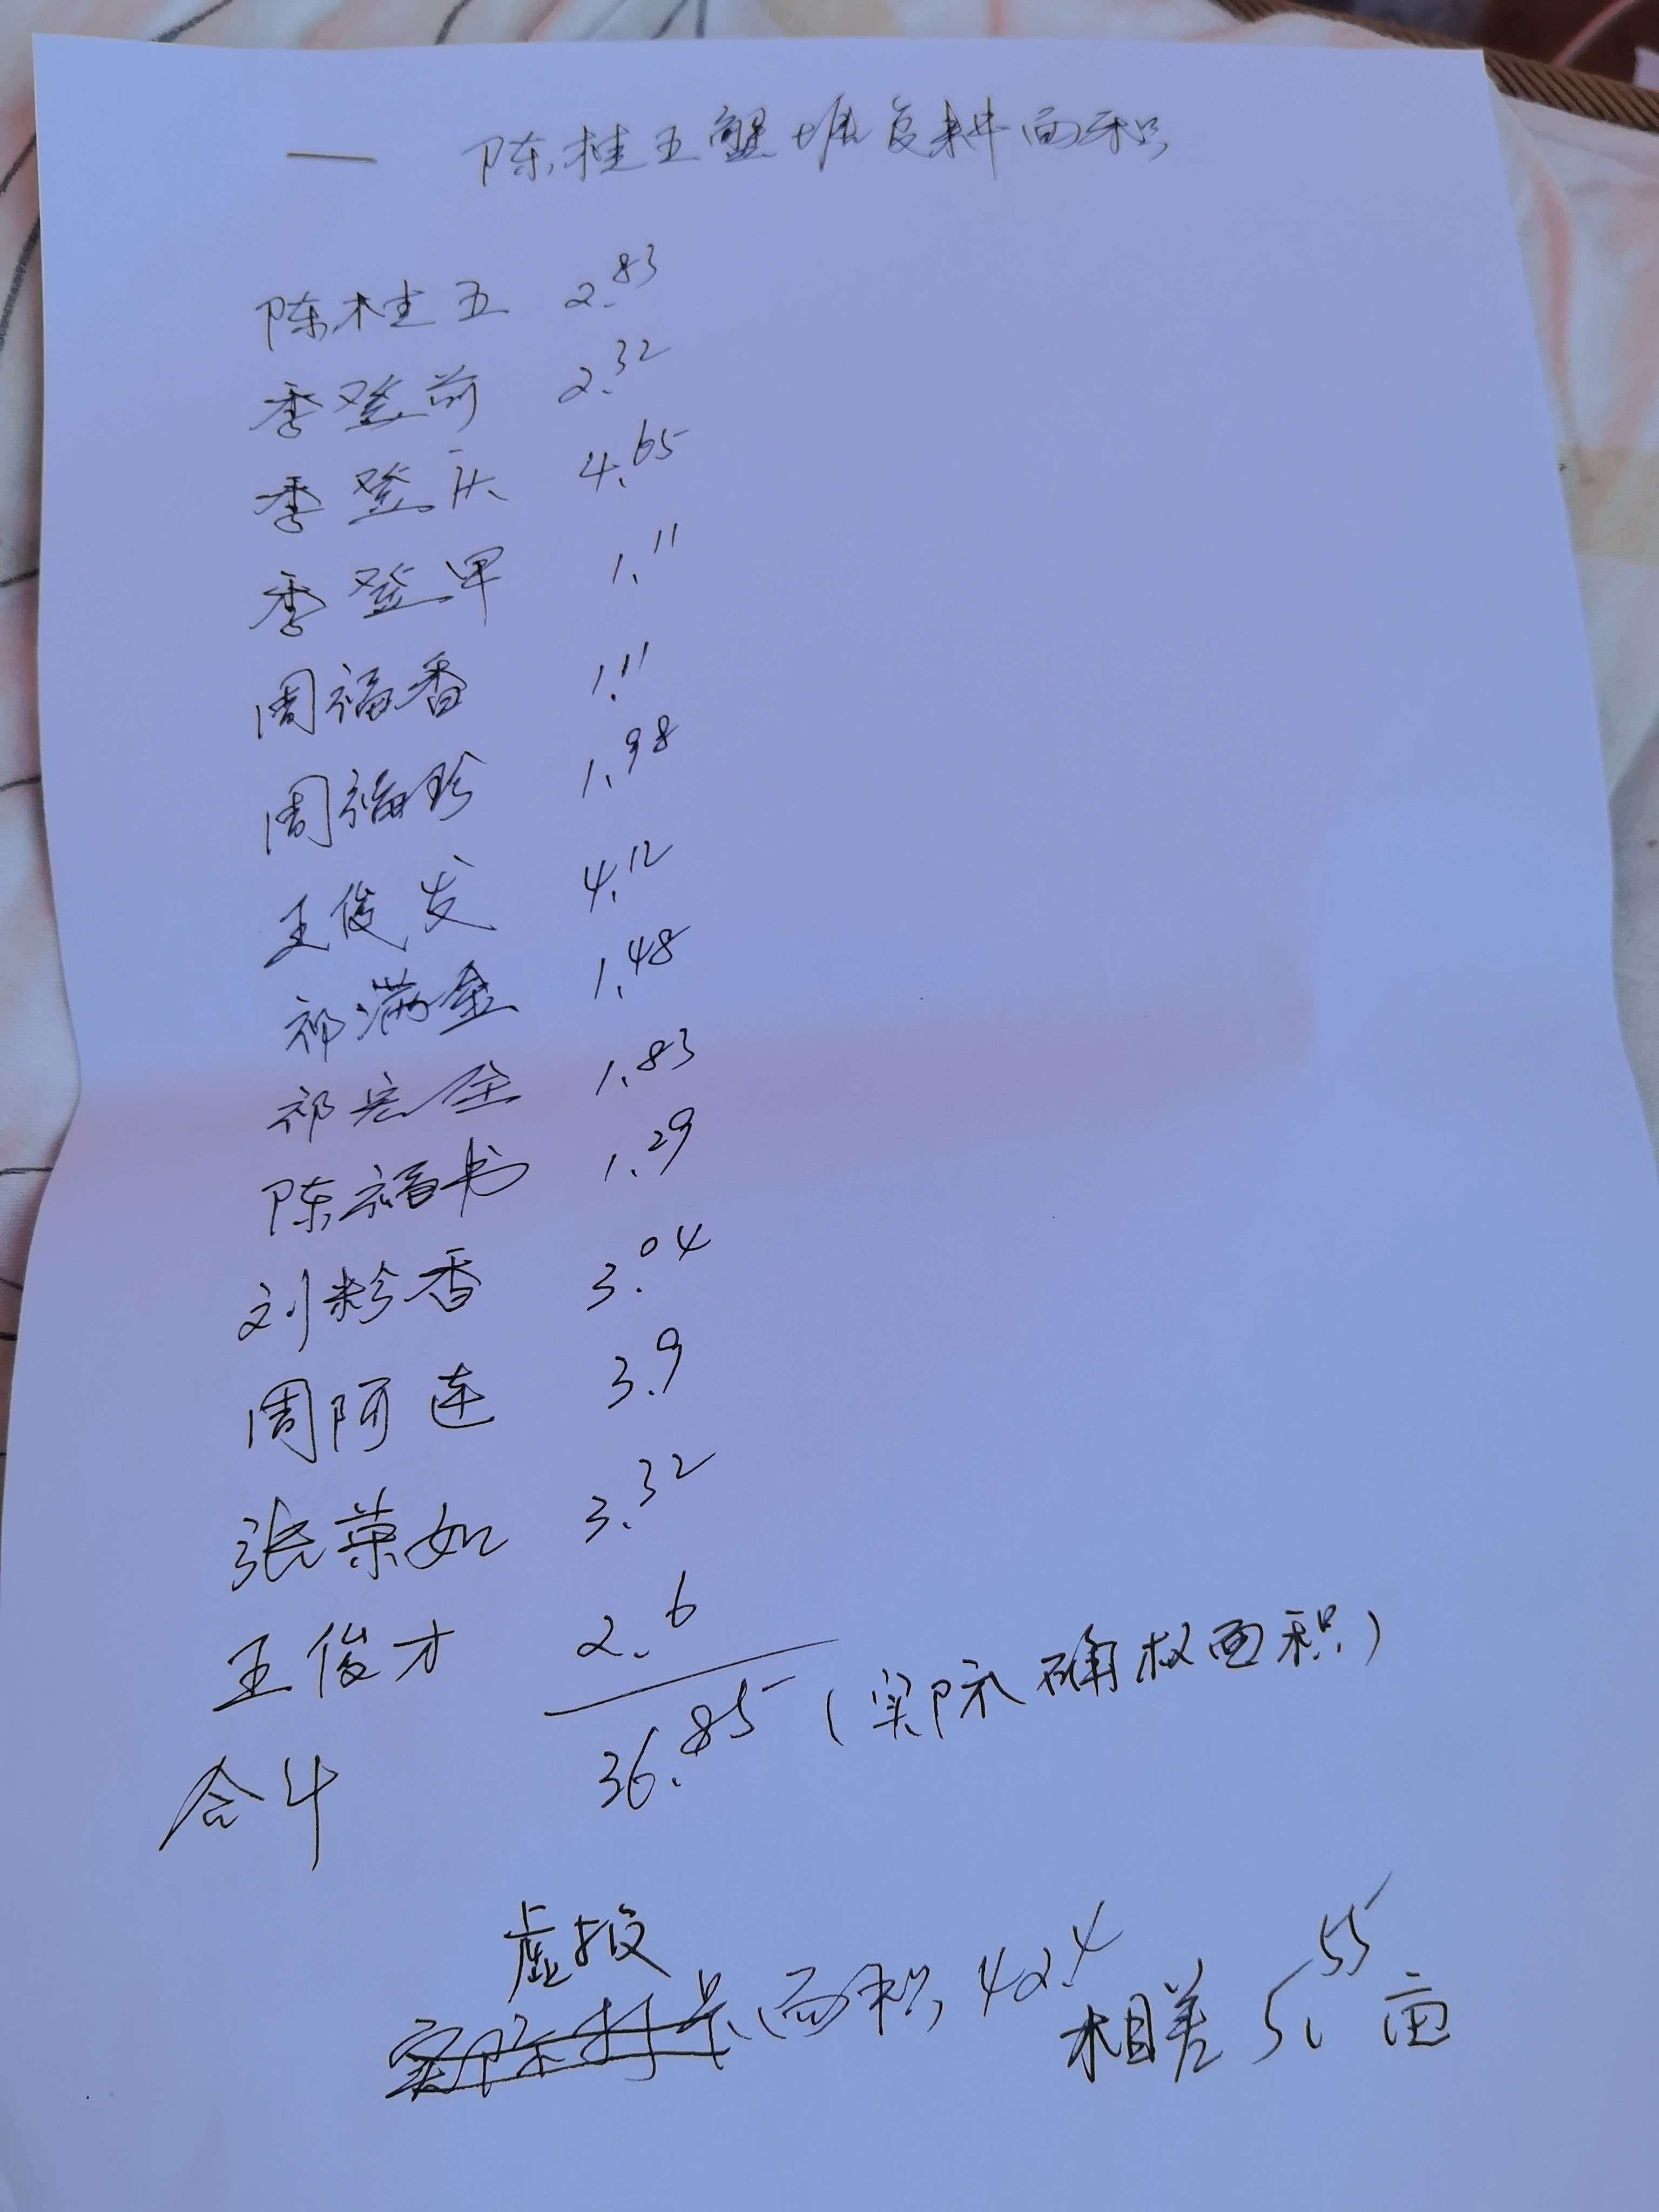 一 陈桂五蟹塘复耕面积
陈桂五 2.83
季登前 2.32
季登庆 4.65
季登甲 1.11
周福香 1.11
周福珍 1.98
王俊发 4.12
祁满金 1.48
祁宏全 1.83
陈福书 1.29
刘粉香 3.04
周阿连 3.9
张荣如 3.32
王俊才 2.6
合计 36.85 (实际确权面积)
虚报
面积 42.4
相差 5.55亩